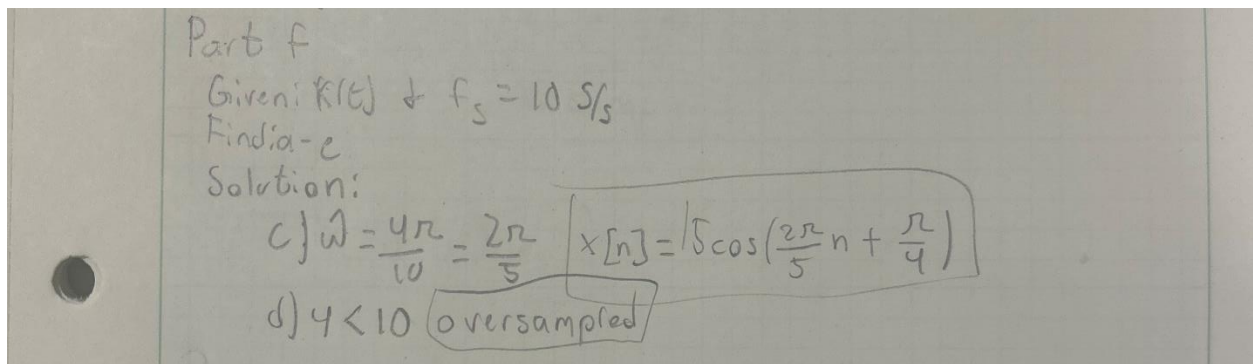 Part f
Given: x(t) & f_s = 10 S/s
Find: a-e
Solution:
c) ω̂ = 4π/10 = 2π/5 x[n] = 15cos(2π/5 n + π/4)
d) 4 < 10 oversampled